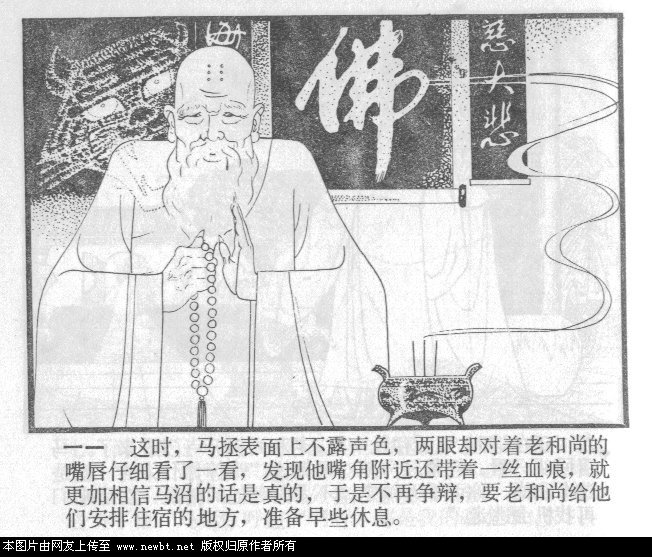 海
佛
慈大悲
一一 这时，马拯表面上不露声色，两眼却对着老和尚的
嘴唇仔细看了一看，发现他嘴角附近还带着一丝血痕，就
更加相信马沼的话是真的，于是不再争辩，要老和尚给他
们安排住宿的地方，准备早些休息。
本图片由网友上传至 www.newbt.net 版权归原作者所有